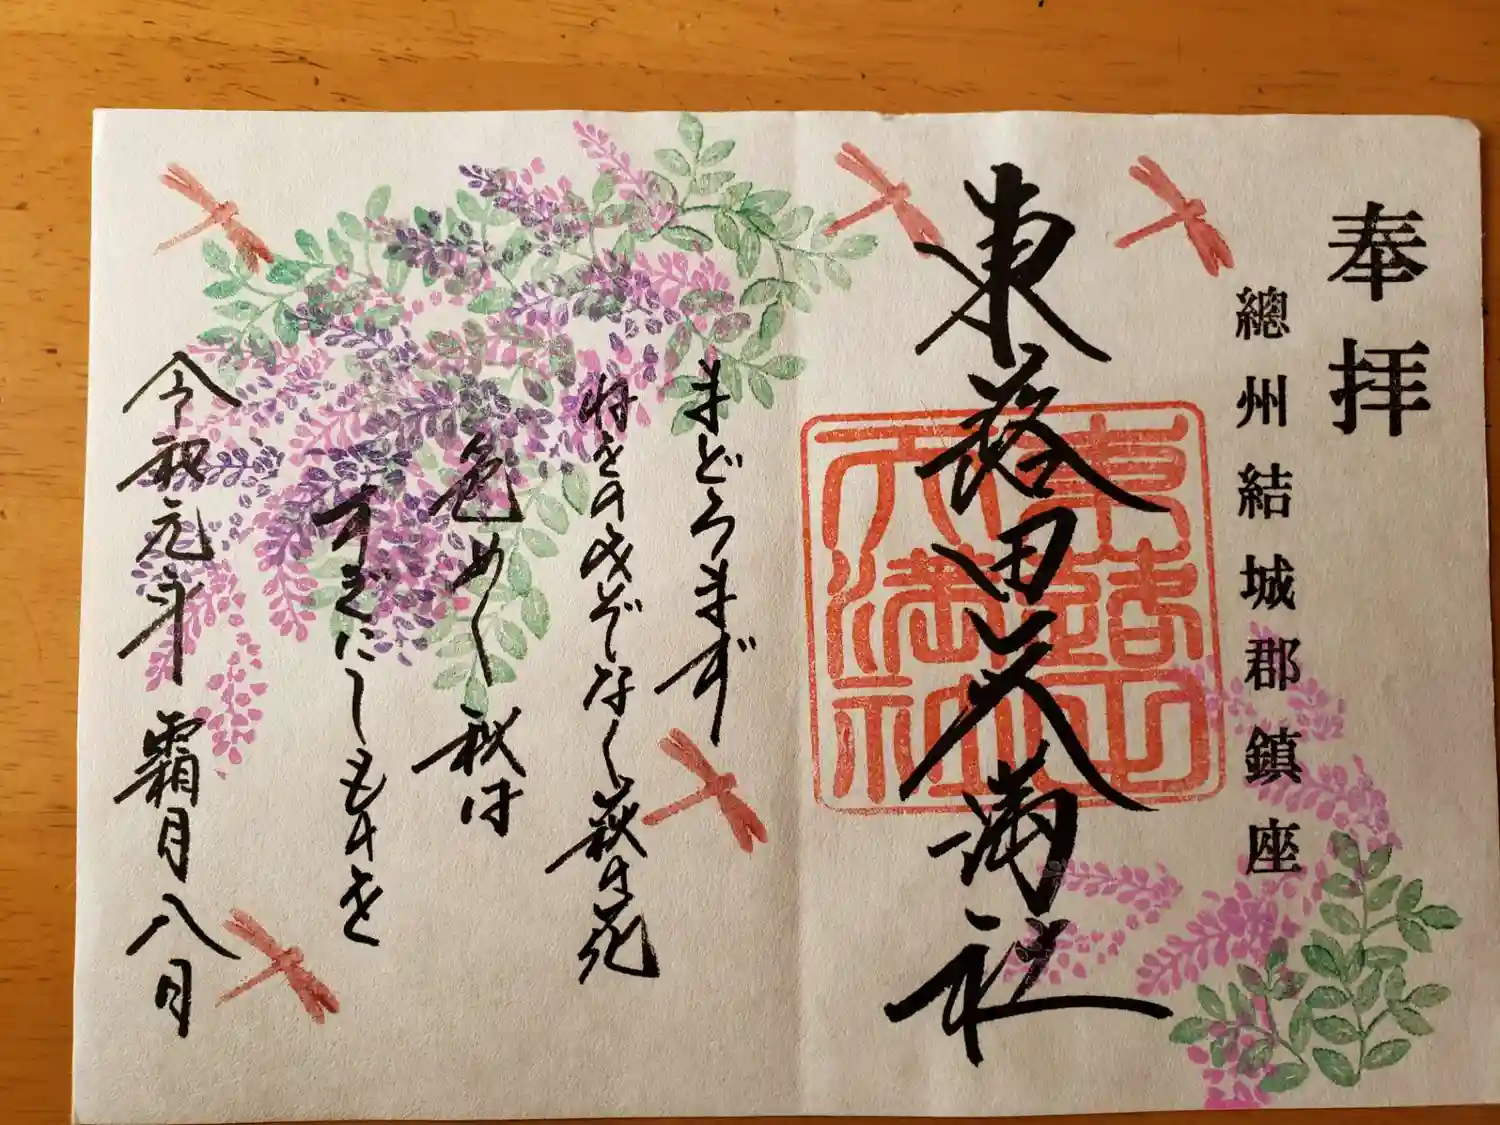 奉拝
總州結城郡鎮座
東蕗田天満社
東蕗田
天満社
まどろまず
ねをのみぞなく萩の花
色めく秋は
すぎにしものを
令和元年霜月八月